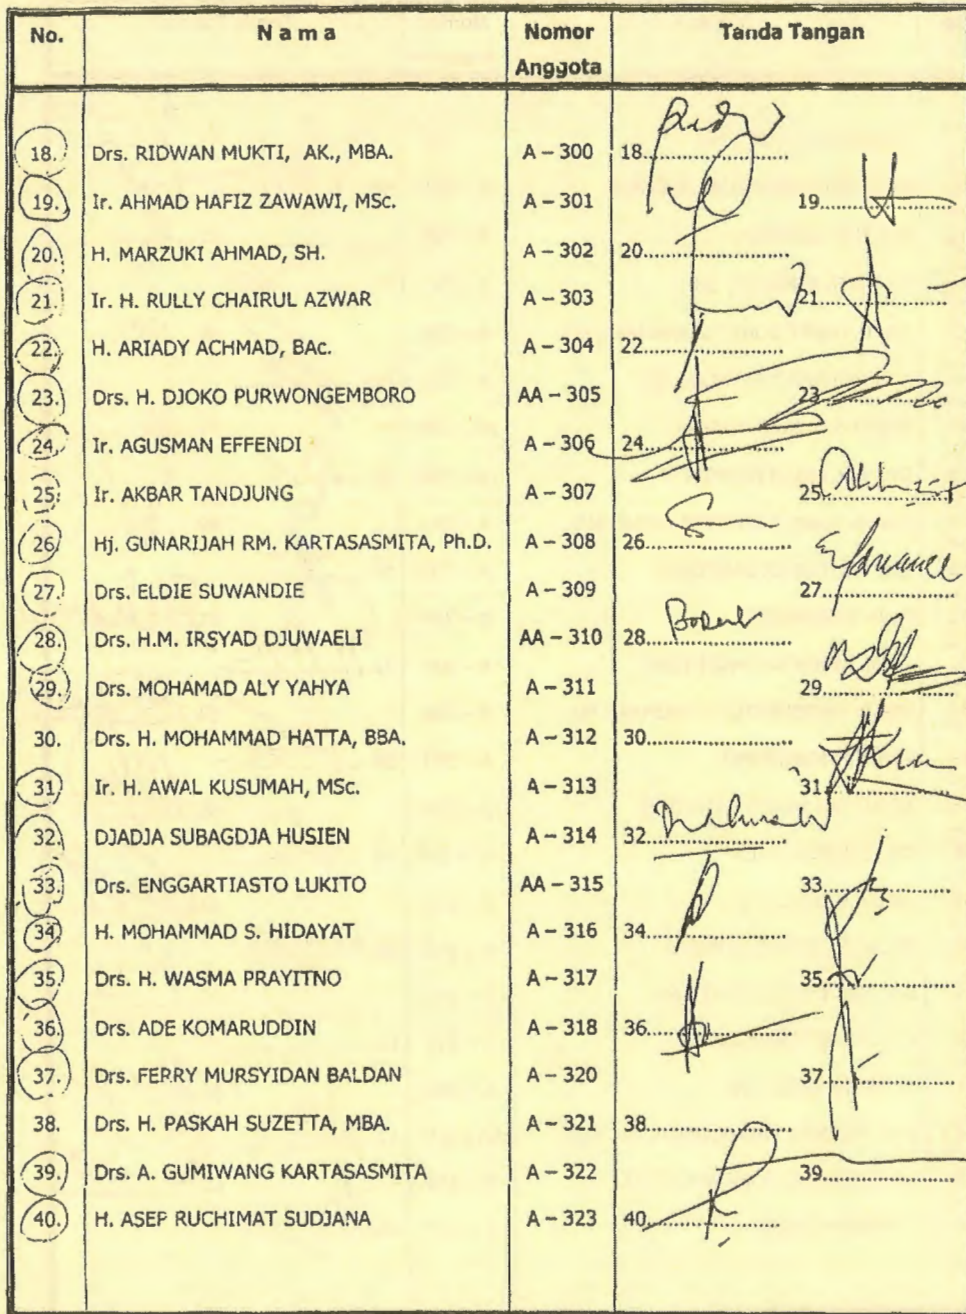 No. N a m a Nomor Anggota Tanda Tangan
18. Drs. RIDWAN MUKTI, AK., MBA. A – 300 18
19. Ir. AHMAD HAFIZ ZAWAWI, MSc. A – 301 19
20. H. MARZUKI AHMAD, SH. A – 302 20
21. Ir. H. RULLY CHAIRUL AZWAR A – 303 21
22. H. ARIADY ACHMAD, BAc. A – 304 22
23. Drs. H. DJOKO PURWONGEMBORO AA – 305 23
24. Ir. AGUSMAN EFFENDI A – 306 24
25. Ir. AKBAR TANDJUNG A – 307 25
26. Hj. GUNARIJAH RM. KARTASASMITA, Ph.D. A – 308 26
27. Drs. ELDIE SUWANDIE A – 309 27
28. Drs. H.M. IRSYAD DJUWAELI AA – 310 28
29. Drs. MOHAMAD ALY YAHYA A – 311 29
30. Drs. H. MOHAMMAD HATTA, BBA. A – 312 30
31. Ir. H. AWAL KUSUMAH, MSc. A – 313 31
32. DJADJA SUBAGDJA HUSIEN A – 314 32
33. Drs. ENGGARTIASTO LUKITO AA – 315 33
34. H. MOHAMMAD S. HIDAYAT A – 316 34
35. Drs. H. WASMA PRAYITNO A – 317 35
36. Drs. ADE KOMARUDDIN A – 318 36
37. Drs. FERRY MURSYIDAN BALDAN A – 320 37
38. Drs. H. PASKAH SUZETTA, MBA. A – 321 38
39. Drs. A. GUMIWANG KARTASASMITA A – 322 39
40. H. ASEP RUCHIMAT SUDJANA A – 323 40